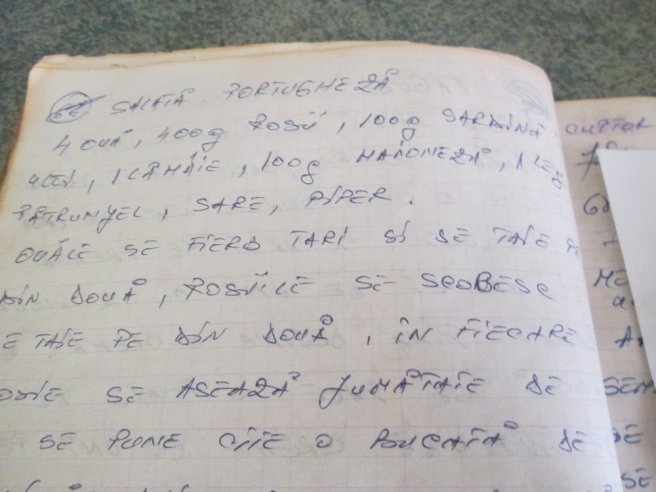 SALATĂ PORTUGHEZĂ
4 OUĂ, 400g ROȘII, 100g SARDINĂ
ULEI, 1 LĂMÂIE, 100g MAIONEZĂ, 1 LEG
PĂTRUNJEL, SARE, PIPER.
OUĂLE SE FIERB TARI ȘI SE TAIE
DIN DOUĂ, ROȘIILE SE SCOBESC
E TAIE PE DIN DOUĂ, ÎN FIECARE
OȘIE SE AȘEAZĂ JUMĂTATE DE
SE PUNE CÎTE O BUCATĂ DE